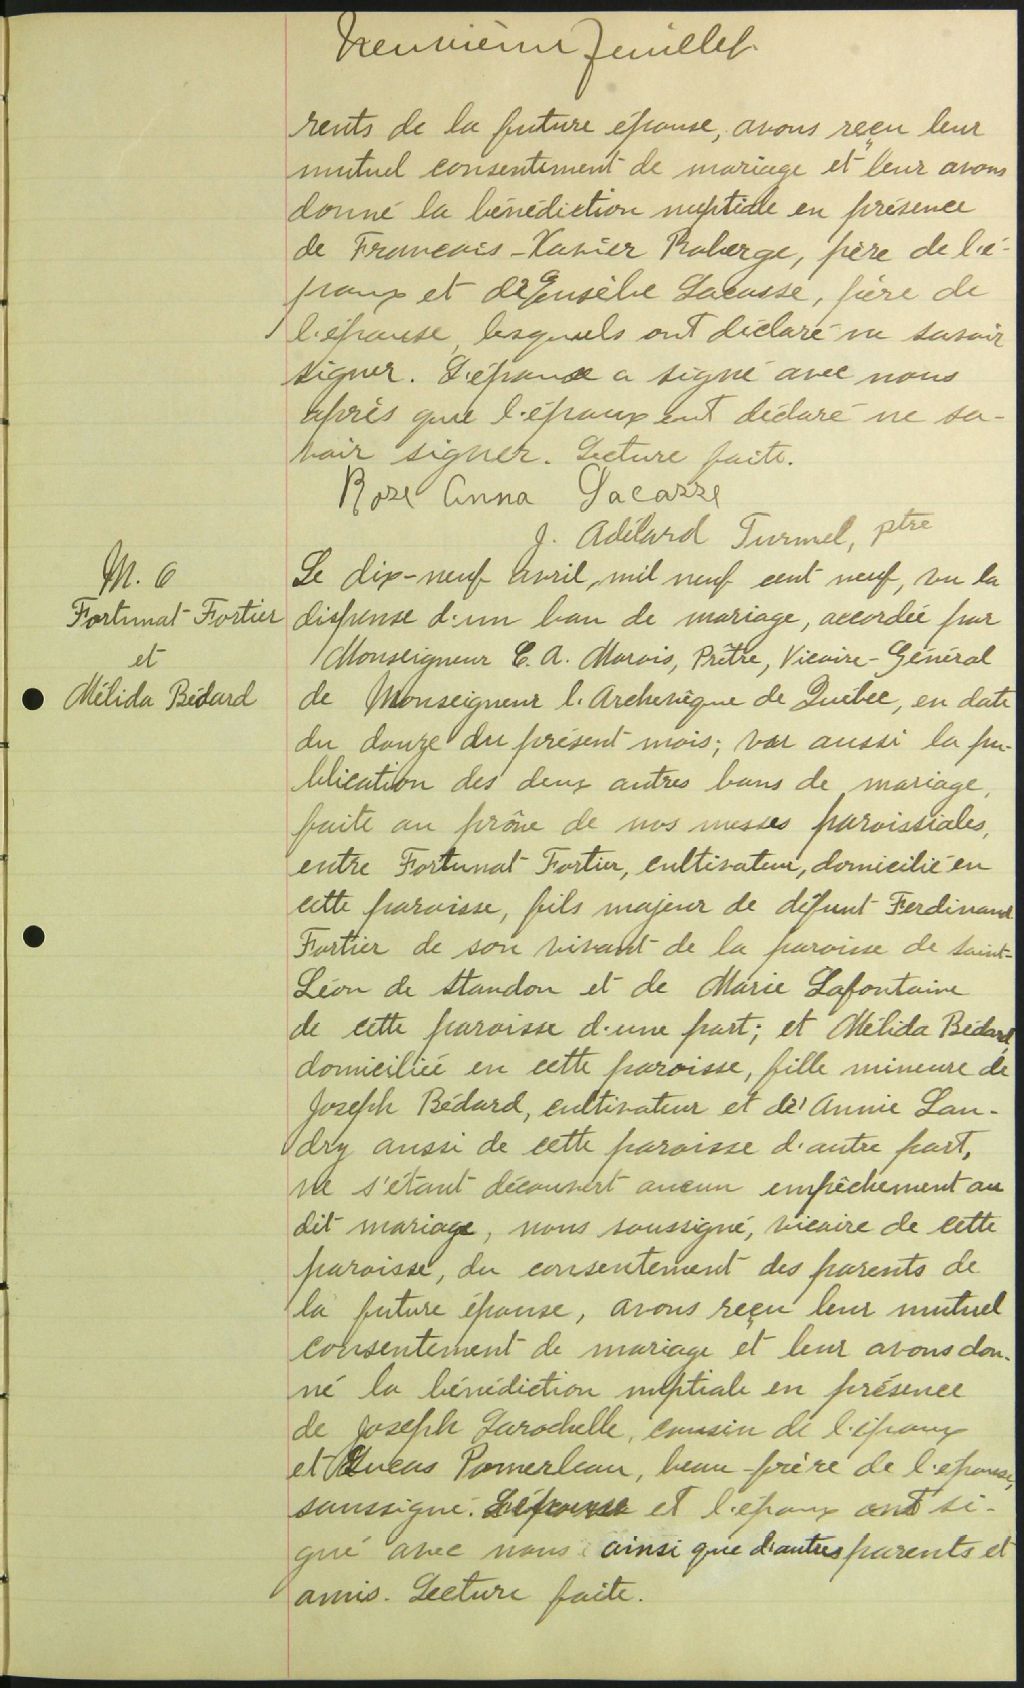 Neuvième feuillet.
rents de la future épouse, avons reçu leur
mutuel consentement de mariage et leur avons
donné la bénédiction nuptiale en présence
de Francois-Xavier Roberge, père de l'é-
poux et d'Eusèbe Lacasse, père de
l'épouse, lesquels ont déclaré ne savoir
signer. L'épouse a signé avec nous
après que l'époux eut déclaré ne sa-
voir signer. Lecture faite.
Rose Anna Lacasse
J. Adélard Turmel, ptre
M. 6
Fortunat Fortier
et
Mélida Bédard
Le dix-neuf avril, mil neuf cent neuf, vu la
dispense d'un ban de mariage, accordée par
Monseigneur C. A. Marois, Prêtre, Vicaire-Général
de Monseigneur l'Archevêque de Québec, en date
du douze du présent mois; vu aussi la pu-
blication des deux autres bans de mariage,
faite au prône de nos messes paroissiales,
entre Fortunat Fortier, cultivateur, domicilié en
cette paroisse, fils majeur de défunt Ferdinand
Fortier de son vivant de la paroisse de Saint-
Léon de Standon et de Marie Lafontaine
de cette paroisse d'une part; et Mélida Bédard
domiciliée en cette paroisse, fille mineure de
Joseph Bédard, cultivateur et de Annie Lan-
dry aussi de cette paroisse d'autre part,
ne s'étant découvert aucun empêchement au
dit mariage, nous soussigné, vicaire de cette
paroisse, du consentement des parents de
la future épouse, avons reçu leur mutuel
consentement de mariage et leur avons don-
né la bénédiction nuptiale en présence
de Joseph Larochelle, cousin de l'époux
et Lucas Pomerleau, beau-frère de l'épouse,
soussigné. L'épouse et l'époux ont si-
gné avec nous ainsi que d'autres parents et
amis. Lecture faite.